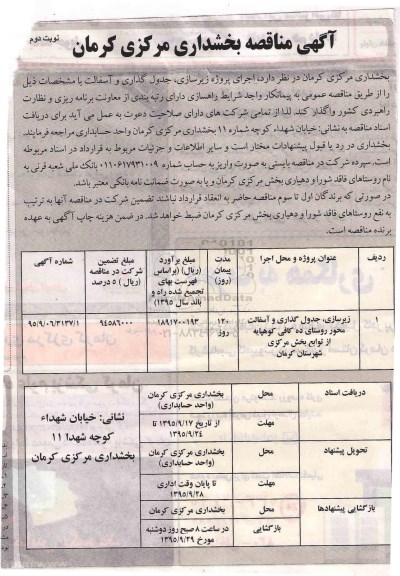 آگهی مناقصه بخشداری مرکزی کرمان
نوبت دوم
بخشداری مرکزی کرمان در نظر دارد، اجرای پروژه زیرسازی، جدول گذاری و آسفالت با مشخصات ذیل
را از طریق مناقصه عمومی به پیمانکار واجد شرایط راهسازی دارای رتبه بندی از معاونت برنامه ریزی و نظارت
راهبردی کشور واگذار کند. لذا از تمامی شرکت های دارای صلاحیت دعوت به عمل می آید برای دریافت
اسناد مناقصه به نشانی: خیابان شهداء کوچه شماره ۱۱ بخشداری مرکزی کرمان واحد حسابداری مراجعه فرمایند.
بخشداری در رد یا قبول پیشنهادات مختار است و سایر اطلاعات و جزئیات مربوط به قرارداد در اسناد مربوطه
است. سپرده شرکت در مناقصه بایستی به صورت واریز به حساب شماره ۰۱۱۰۶۱۷۹۳۱۰۰۹ بانک ملی شعبه قرنی به
نام روستاهای فاقد شورا و دهیاری بخش مرکزی کرمان و یا به صورت ضمانت نامه بانکی معتبر باشد.
در صورتی که برندگان اول تا سوم مناقصه حاضر به انعقاد قرارداد نباشند تضمین شرکت در مناقصه آنها به ترتیب
به نفع روستاهای فاقد شورا و دهیاری بخش مرکزی کرمان ضبط خواهد شد. در ضمن هزینه چاپ آگهی به عهده
برنده مناقصه است.
ردیف
عنوان پروژه و محل اجرا
مدت پیمان (روز)
مبلغ برآورد (ریال) (براساس فهرست بهای تجمیع شده راه و باند سال ۱۳۹۵)
مبلغ تضمین شرکت در مناقصه (ریال) ۵ درصد
شماره آگهی
۱
زیرسازی، جدول گذاری و آسفالت
محور روستای ده کافی کوهپایه
از توابع بخش مرکزی
شهرستان کرمان
۱۲۰ روز
۱۸۹۱۷۰۰۱۹۳
۹۴۵۸۶۰۰۰
۹۵/۹/۰۶/۳۱۳۷/۱
دریافت اسناد
محل
بخشداری مرکزی کرمان
(واحد حسابداری)
مهلت
از تاریخ ۱۳۹۵/۹/۱۷ تا
۱۳۹۵/۹/۲۴
تحویل پیشنهاد
محل
بخشداری مرکزی کرمان
(واحد حسابداری)
مهلت
تا پایان وقت اداری
۱۳۹۵/۹/۲۸
بازگشایی پیشنهادها
محل
بخشداری مرکزی کرمان
بازگشایی
در ساعت ۸ صبح روز دوشنبه
مورخ ۱۳۹۵/۹/۲۹
نشانی: خیابان شهداء
کوچه شهدا ۱۱
بخشداری مرکزی کرمان